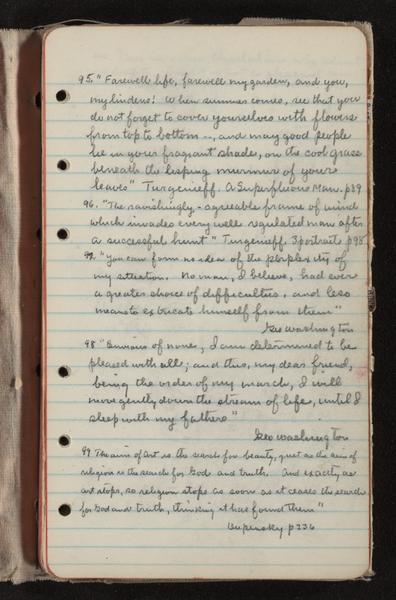 95. "Farewell life, farewell my garden, and you,
my lindens! When summer comes, see that you
do not forget to cover yourselves with flowers
from top to bottom --, and may good people
lie in your fragrant shade, on the cool grass
beneath the lisping murmur of your
leaves" Turgenieff. A Superfluous Man. p89
96. "The ravishingly-agreeable frame of mind
which invades every well regulated man after
a successful hunt" Turgenieff. 3 portraits p98
97. "You can form no idea of the perplexity of
my situation. No man, I believe, had ever
a greater choice of difficulties, and less
means to extricate himself from them"
Geo Washington
98 "Envious of none, I am determined to be
pleased with all; and this, my dear friend,
being the order of my march, I will
move gently down the stream of life, until I
sleep with my fathers"
Geo Washington
99 The aim of art is the search for beauty, just as the aim of
religion is the search for God and truth. And exactly as
art stops, so religion stops as soon as it ceases the search
for God and truth, thinking it has found them"
p236